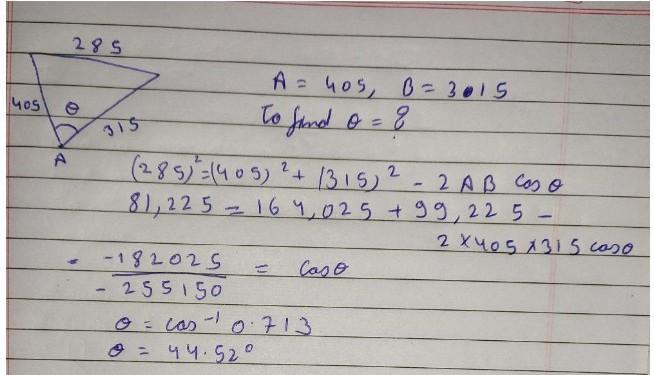 285
405
θ
315
A
A = 405, B = 3•15
To find θ = ?
(285)² = (405)² + (315)² - 2AB cosθ
81,225 = 164,025 + 99,225 -
2×405×315 cosθ
-182025 / -255150 = cosθ
θ = cos⁻¹ 0.713
θ = 44.52°